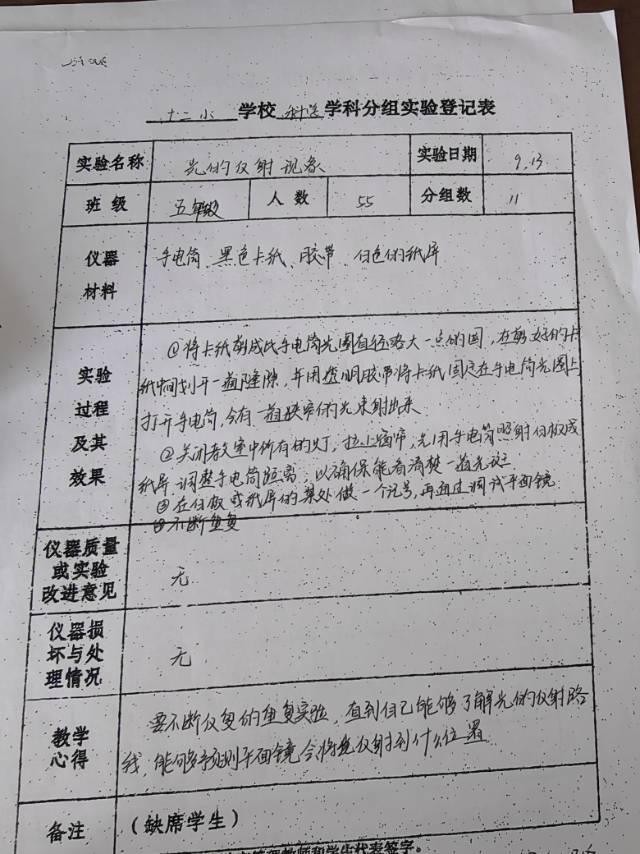 十二小 学校 科学 学科分组实验登记表
实验名称 光的反射现象 实验日期 9.13
班级 五年级 人数 55 分组数 11
仪器材料 手电筒、黑色卡纸、胶带、白色的纸屏
实验过程及其效果
①将卡纸剪成比手电筒光圈直径略大一点的圆,在剪好的卡
纸中间划开一道缝隙,并用透明胶带将卡纸固定在手电筒光圈上
打开手电筒,会有一道狭窄的光束射出来
②关闭教室中所有的灯,拉上窗帘,先用手电筒照射白板或
纸屏 调整手电筒距离,以确保能看清楚一道光斑
③在白板或纸屏的某处做一个记号,再通过调试平面镜
④不断重复
仪器质量或实验改进意见 无
仪器损坏与处理情况 无
教学心得 要不断反复的重复实验,直到自己能够了解光的反射路
线,能够预测平面镜会将光反射到什么位置
备注 (缺席学生)
管理教师和学生代表签字。